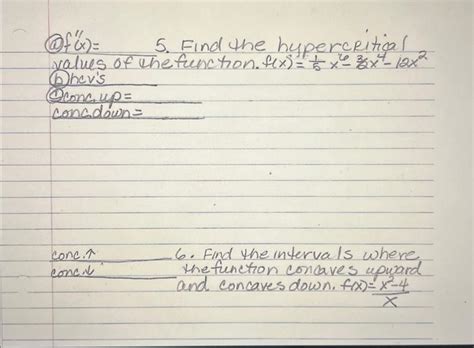 ⓐf"(x)= 5. Find the hypercritical
values of the function. f(x)= 1/5 x⁶ - x⁴ - 12x²
ⓑhcv's
ⓒconc. up=
conc. down=
conc.↑ 6. Find the intervals where
conc.↓ the function concaves upward
and concaves down. f(x)= x²-4/x